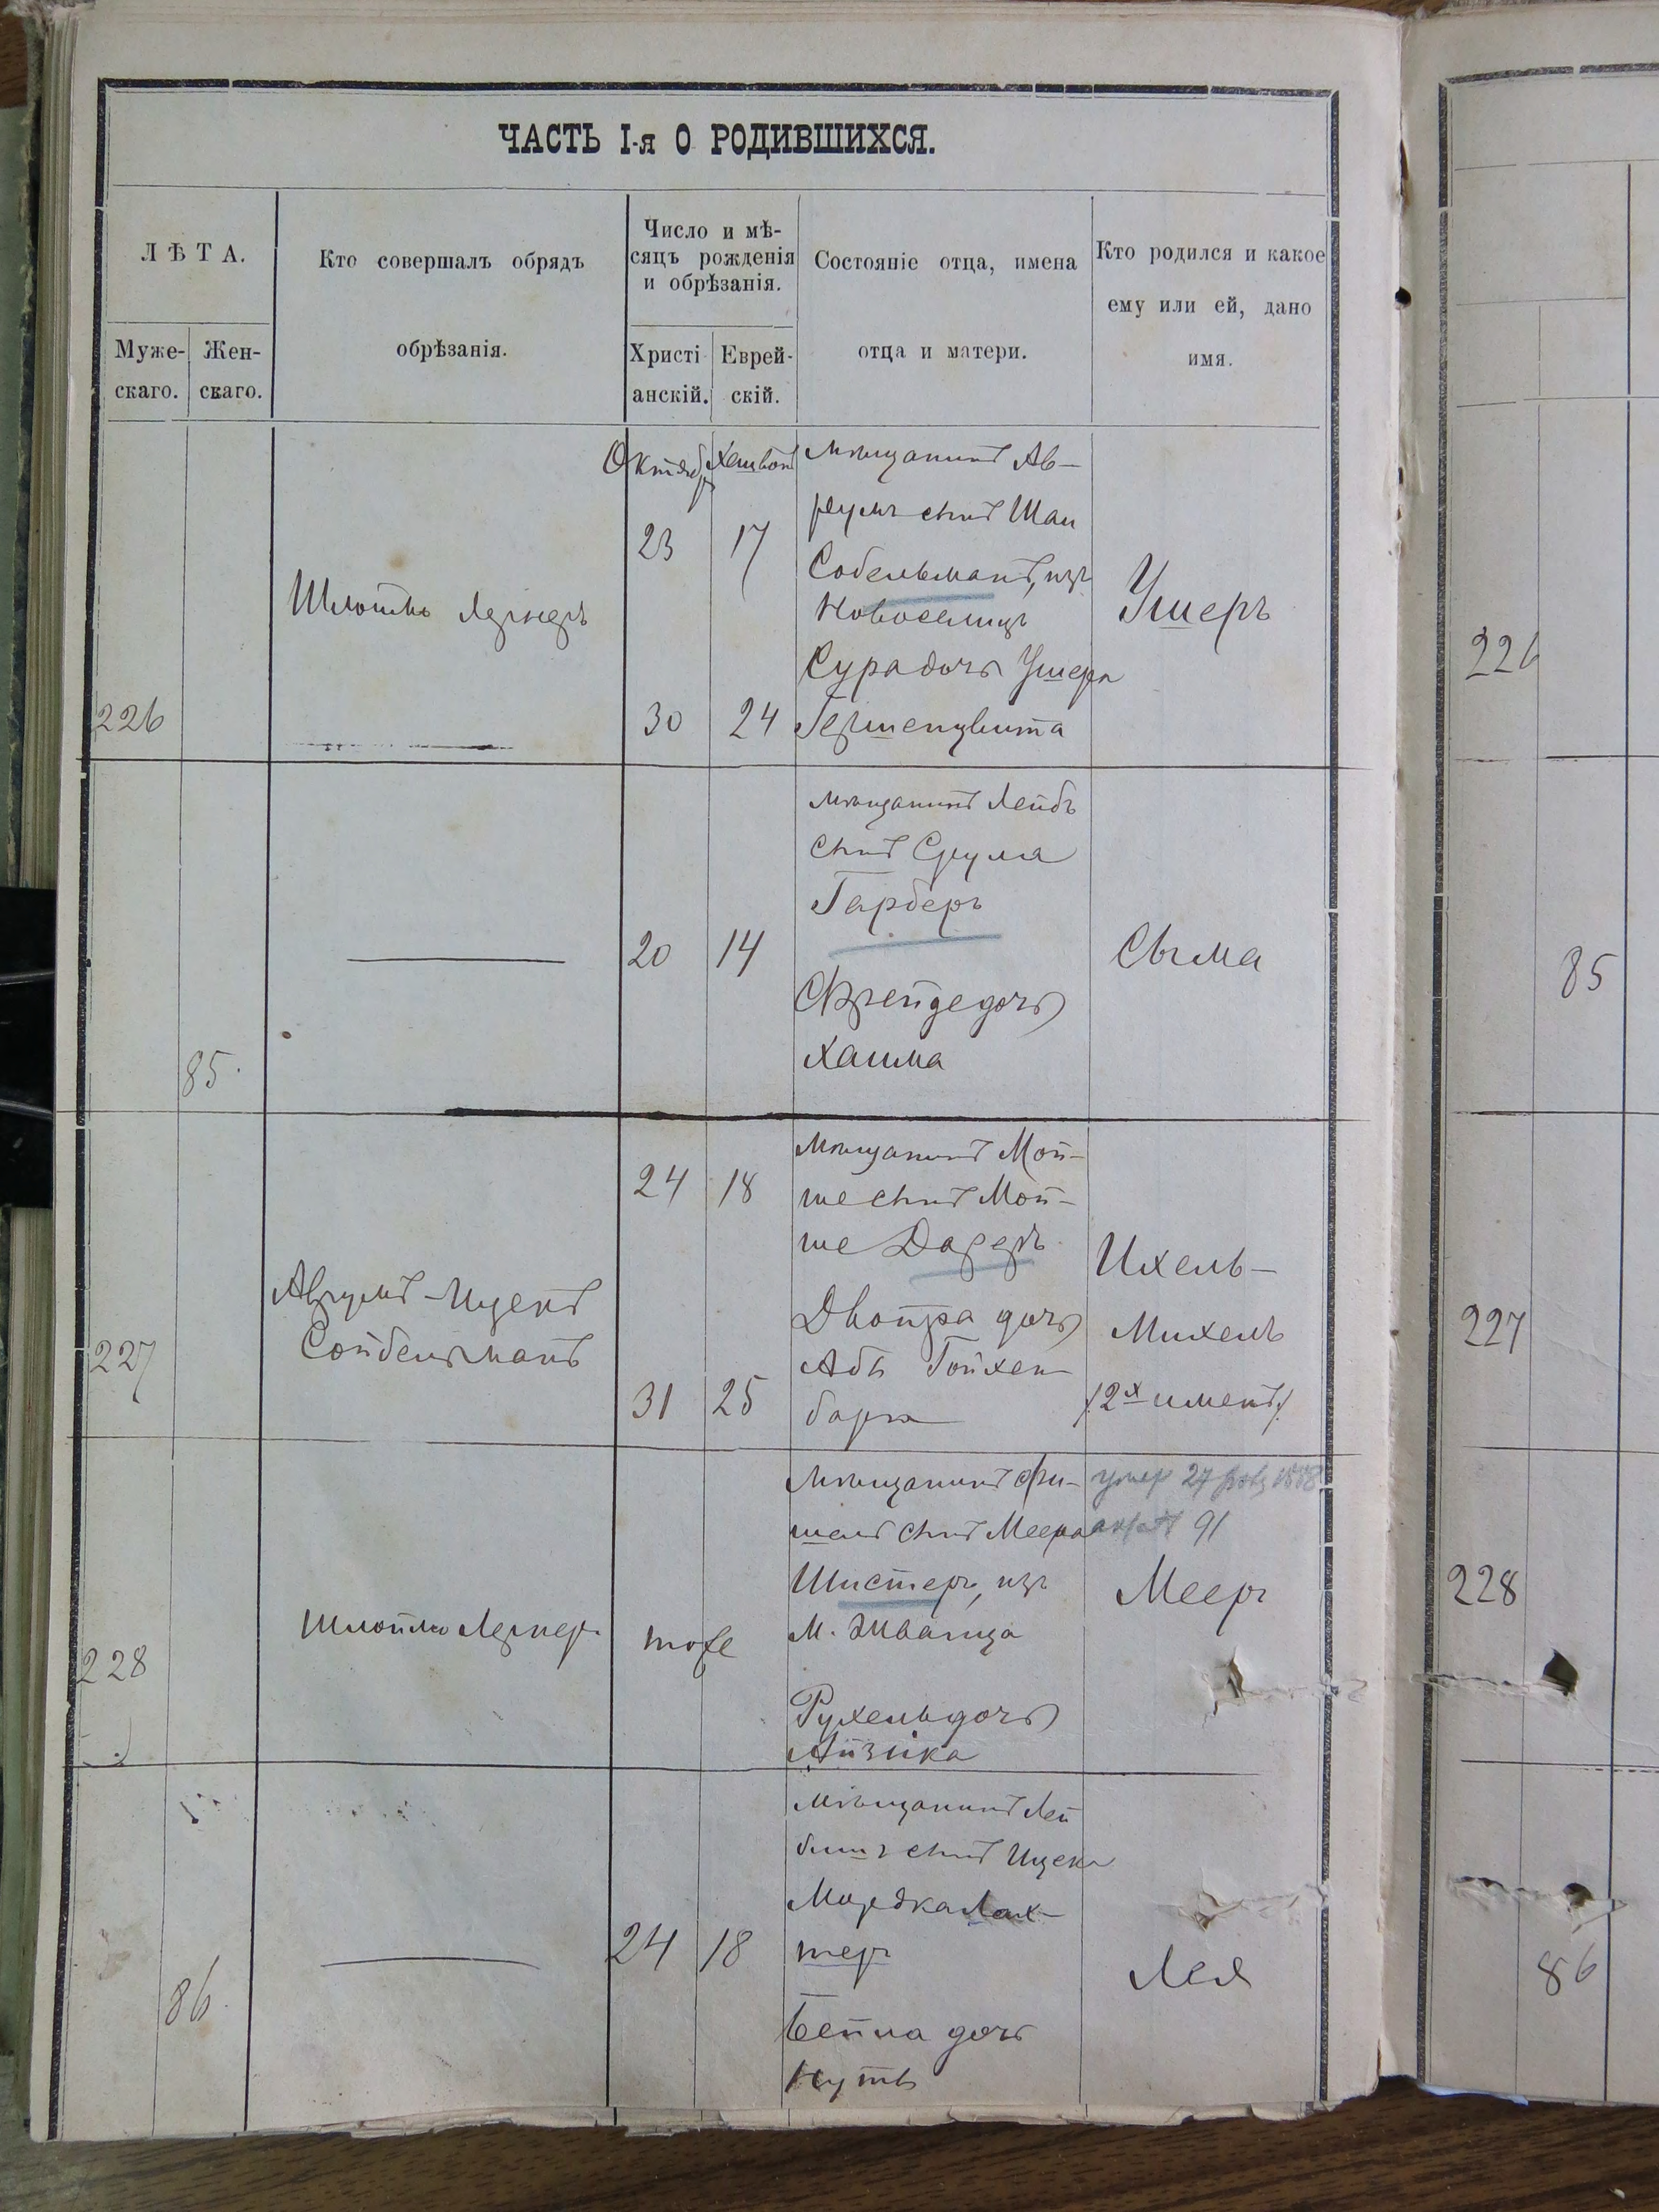 ЧАСТЬ I-я О РОДИВШИХСЯ.
ЛѢТА.
Муже-
скаго.
Жен-
скаго.
Кто совершалъ обрядъ
обрѣзанія.
Число и мѣ-
сяцъ рожденія
и обрѣзанія.
Христі
анскій.
Еврей-
скій.
Состояніе отца, имена
отца и матери.
Кто родился и какое
ему или ей, дано
имя.
226
Шлойме Лернеръ
Октябр
23
30
Хешвонъ
17
24
мѣщанинъ Ав-
румъ сынъ Шаи
Собельманъ, изъ
Новоселицъ
Сура дочь Ушера
Гершенцвита
Ушеръ
85.
20
14
мѣщанинъ Лейбъ
сынъ Срула
Гарберъ
Фрейде дочь
Хаима
Сыма
227
Аврумъ-Ицекъ
Сойбельманъ
24
31
18
25
мѣщанинъ Мой-
ше сынъ Мой-
ше
Двойра дочь
Абы Гойхен
барга
Ихель-
Михель
/2х именъ/
228
Шлойме Лернеръ
тоже
мѣщанинъ Фи-
шель сынъ Меера
Шистеръ, изъ
М. Жванца
Рухель дочь
Айзика
умер 27 1888
91
Мееръ
86.
24
18
мѣщанинъ Лей
бишъ сынъ Ицека
Мордка Лах-
теръ
Бейла дочь
Нуты
Лея
226
85
227
228
86